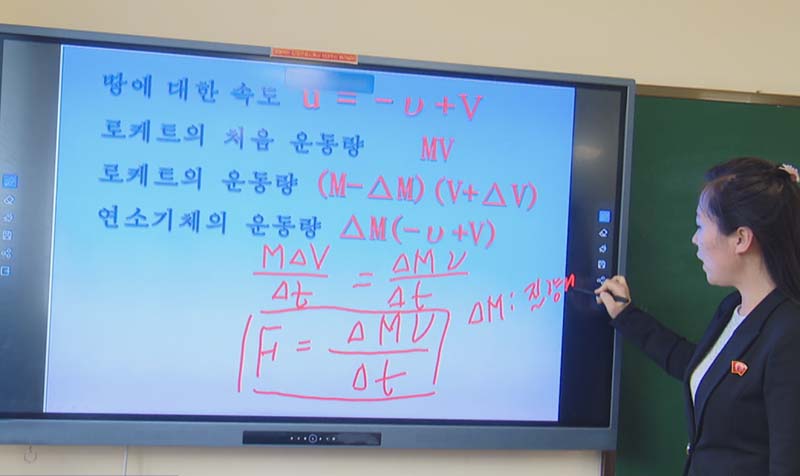 땅에 대한 속도 u = -υ+V
로케트의 처음 운동량 MV
로케트의 운동량 (M-△M) (V+△V)
연소기체의 운동량 △M(-υ+V)
M△V/△t = △Mυ/△t
F = △Mυ/△t
△M: